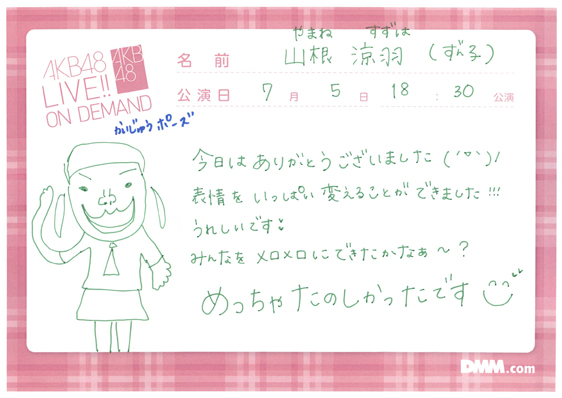 AKB48
LIVE!!
ON DEMAND
AKB
48
やまね すずは
名前 山根 涼羽 (ずん子)
公演日 7月 5日 18:30 公演
かいじゅうポーズ
今日はありがとうございました ('▽')/
表情をいっぱい変えることができました!!!
うれしいです
みんなをメロメロにできたかなぁ〜?
めっちゃたのしかったです
DMM.com